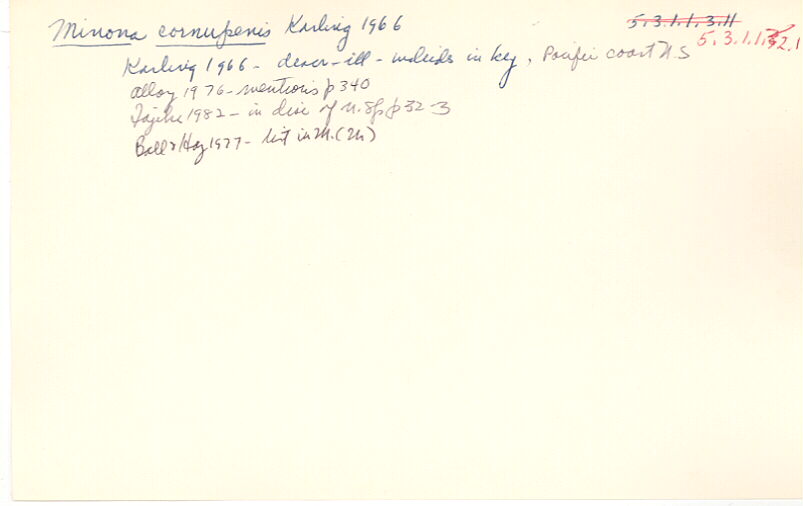 Minona cornupenis Karling 1966
5.3.1.1.3.11
5.3.1.1. 2.1
Karling 1966 - descr - ill - includes in key, Pacific coast U.S
Alloy 1976 - mentions p 340
Tajika 1982 - in disc of n. sp p 32-3
Ball & Hay 1977 - list in M. (M)